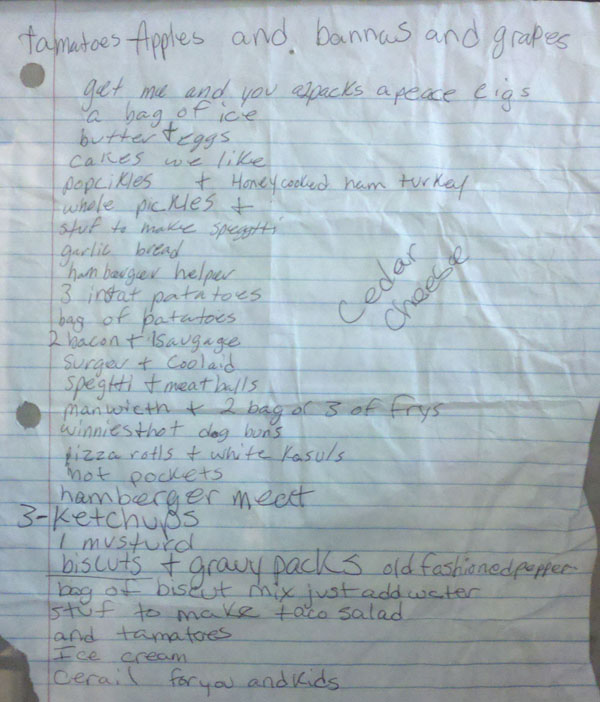 tamatoes Apples and. bannas and grapes
get me and you a2packs apeace cigs
a bag of ice
butter + eggs
cakes we like
popcikles + Honeycooked ham turkey
whole pickles +
stuf to make spegttti
garlic bread
hambergier helper
3 intat patatoes
bag of patatoes
Cedar
cheese
2 bacon + 1saugage
surger + coolaid
speghtti + meatballs
manwicth + 2 bag or 3 of frys
winnies+hot dog buns
pizza rolls + white Kasuls
hot pockets
hamberger meat
3-Ketchups
1 musturd
biscuts + gravy packs old fashionedpepper
bag of biscut mix just add water
stuf to make taco salad
and tamatoes
Ice cream
Cerail for you and Kids